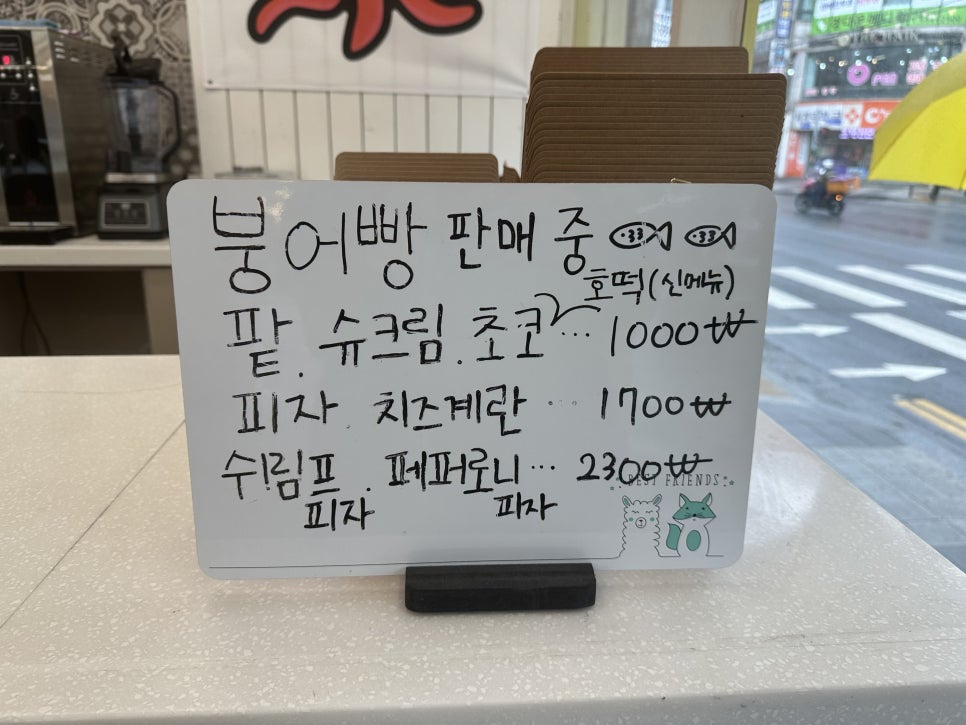 붕어빵 판매 중
호떡(신메뉴)
팥. 슈크림. 초코 ... 1000₩
피자. 치즈계란 ... 1700₩
쉬림프. 페퍼로니 ... 2300₩
피자 피자
BEST FRIENDS